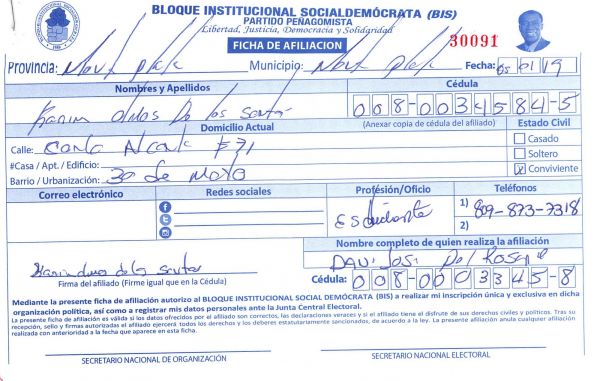 BLOQUE INSTITUCIONAL SOCIALDEMÓCRATA (BIS)
PARTIDO PEÑAGOMISTA
Libertad, Justicia, Democracia y Solidaridad
FICHA DE AFILIACION
30091
Provincia: Monte plata Municipio: Monte plata Fecha: 05/01/19
Nombres y Apellidos Cédula
De los santos 008-0034584-5
Domicilio Actual (Anexar copia de cédula del afiliado) Estado Civil
Calle: #71
Casado
#Casa / Apt. / Edificio:
Soltero
Barrio / Urbanización: 30 de Mayo
X Conviviente
Correo electrónico Redes sociales Profesión/Oficio Teléfonos
Estudiante 1) 809-873-7318
2)
Nombre completo de quien realiza la afiliación
David Jose Del Rosario
de los santos
Firma del afiliado (Firme igual que en la Cédula) Cédula: 008-0003345-8
Mediante la presente ficha de afiliación autorizo al BLOQUE INSTITUCIONAL SOCIAL DEMÓCRATA (BIS) a realizar mi inscripción única y exclusiva en dicha
organización política, así como a registrar mis datos personales ante la Junta Central Electoral.
La presente ficha de afiliación es válida si los datos ofrecidos por el afiliado son correctos, las declaraciones veraces y si el afiliado tiene el disfrute de sus derechos civiles y políticos. Tras su
recepción, sello y firmas autorizadas el afiliado ejercerá todos los derechos y los deberes estatutariamente sancionados, de acuerdo a la ley. La presente afiliación anula cualquier afiliación
realizada con anterioridad a la fecha que aparece en esta ficha.
SECRETARIO NACIONAL DE ORGANIZACIÓN SECRETARIO NACIONAL ELECTORAL